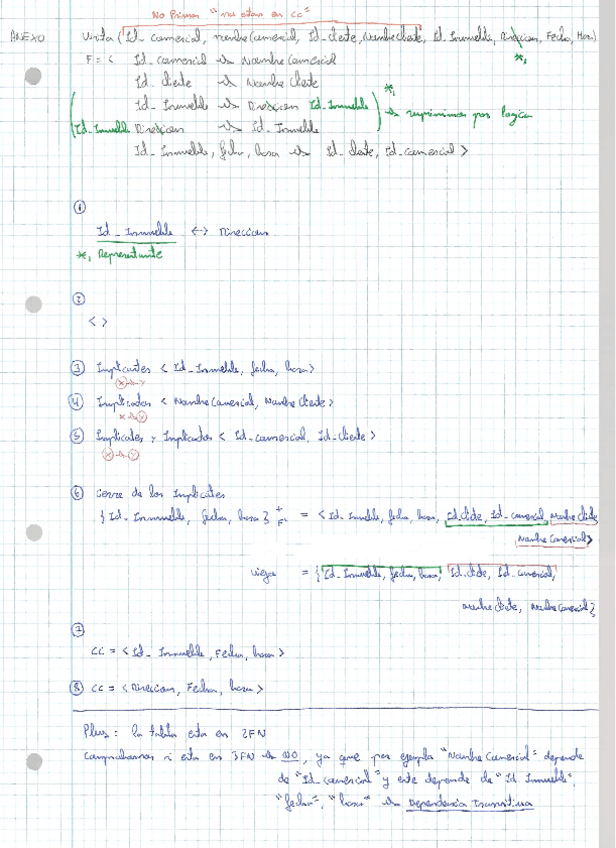 No Primos "no estan en CC"
ANEXO Visita (Id_comercial, nombreComercial, Id_cliente, NombreCliente, Id_Inmueble, Direccion, Fecha, Hora)
*1
F = < Id_comercial → NombreComercial
Id_cliente → NombreCliente
*1
Id_Inmueble → Direccion Id_Inmueble
→ suprimimos por logica
Id_Inmueble Direccion → Id_Inmueble
Id_Inmueble, fecha, hora → Id_cliente, Id_comercial >
①
Id_Inmueble <-> Direccion
*1 Representante
②
< >
③ Implicantes < Id_Inmueble, fecha, hora >
X → Y
④ Implicados < NombreComercial, NombreCliente >
X → Y
⑤ Implicantes y Implicados < Id_comercial, Id_cliente >
X → Y
⑥ Cierre de los Implicantes
{ Id_Inmueble, fecha, hora } + F = < Id_Inmueble, fecha, hora, Id_cliente, Id_comercial, nombrecliente
NombreComercial >
= { Id_Inmueble, fecha, hora, Id_cliente, Id_comercial,
nombrecliente, NombreComercial }
⑦
CC = < Id_Inmueble, Fecha, hora >
⑧ CC = < Direccion, Fecha, hora >
Plus: la tabla esta en 2FN
Comprobamos si esta en 3FN → NO, ya que por ejemplo "NombreComercial" depende
de "Id_comercial" y este depende de "Id_Inmueble",
"fecha", "hora" → Dependencia transitiva